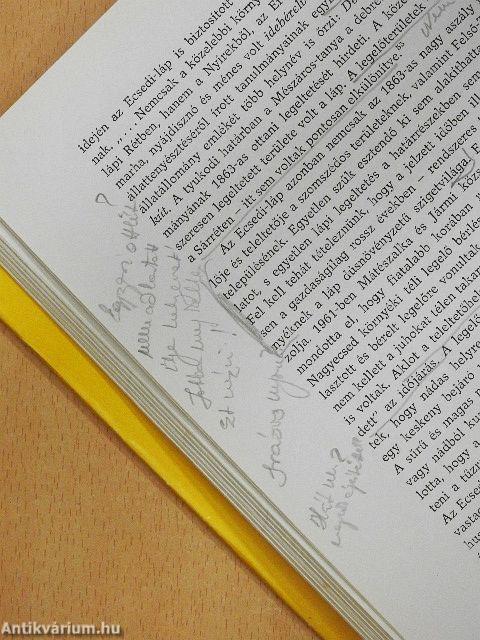 idején az Ecsedi-láp is biztosított
nak. „.... Nemcsak a közelebbi körny
lápi Rétben, hanem a Nyírekből, az Er
marha, nyájdisznó és ménes volt idebérelt
állattenyésztéséről írott tanulmányainak egy
állatállomány emlékét több helynév is őrzi. De
kút. A tyukodi határban a Mészáros-tanya a debre
mányának 1863-as ottani legeltetését hirdeti. A köz
szeresen legeltetett területe volt a láp. A legelőterületek
a Sárréten – itt sem voltak pontosan elkülönítve.
Az Ecsedi-láp azonban nemcsak az 1863-as nagy aszály
lője és teleltetője a szomszédos területeknek, valamint Felső
településének. Egyetlen szűk esztendő ki sem alakíthatta
latot, s egyetlen lápi legeltetés a határrészekben sem
Fel kell tehát tételeznünk, hogy a jelzett időben ill
sen a gazdaságilag rossz években – rendszeres
nyéknek a láp dúsnövényzetű szigetvilága.
zolja, 1961-ben Mátészalka és Jármi köz
mondotta el, hogy fiatalabb korában
Nagyecsed környéki téli legelő bérlés
lasztott és bérelt legelőre vonultak
nem kellett a juhokat télen takar
is voltak. Aklot a teleltetőhel
dett" az időjárás. A legelő
tek, hogy nádas helyre
egy keskeny bejáró
A sűrű és magas n
vagy nádból kuc
lotta, hogy a
teni a tűz
Az Ecsed
vastag
hu
Nem
Egyyéni
ellenállatott
helyenet
Jobban meg kellene
Ezt nézni!
nyom
Hát ki?
Antikvárium.hu